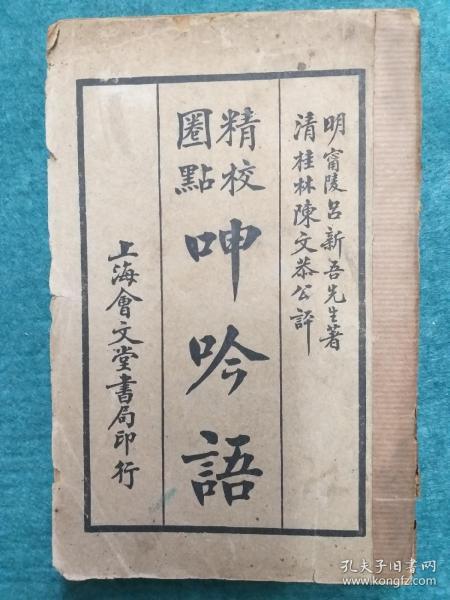 明甯陵呂新吾先生著
清桂林陳文恭公評
精校
圈點
呻吟語
上海會文堂書局印行
孔夫子旧书网
www.kongfz.com